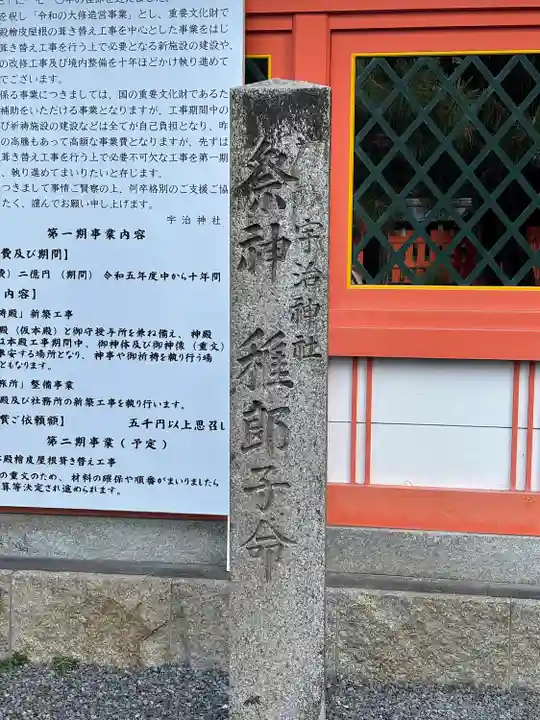 を祝し「令和の大修造営事業」とし、重要文化財で
殿檜皮屋根の葺き替え工事を中心とした事業をはじ
葺き替え工事を行う上で必要となる新施設の建設や、
の改修工事及び境内整備を十年ほどかけ執り進めて
でございます。
係る事業につきましては、国の重要文化財であるた
補助をいただける事業となりますが、工事期間中の
び祈祷施設の建設などは全てが自己負担となり、昨
の高騰もあって高額な事業費となりますが、先ずは
葺き替え工事を行う上で必要不可欠な工事を第一期
、執り進めてまいりたいと存じます。
つきまして事情ご賢察の上、何卒格別のご支援ご協
たく、謹んでお願い申し上げます。
宇治神社
第一期事業内容
費及び期間】
費）二億円 （期間） 令和五年度中から十年間
内容】
殿」新築工事
殿（仮本殿）と御守授与所を兼ね備え、神殿
は本殿工事期間中、御神体及び御神像（重文）
奉安する場所となり、神事や御祈祷を執り行う場
ともなります。
旅所」整備事業
殿及び社務所の新築工事を執り行います。
費ご依頼額】 五千円以上思召し
第二期事業（予定）
本殿檜皮屋根葺き替え工事
の重文のため、材料の確保や順番がまいりましたら
算等決定され進められます。
宇治神社
祭神 稚郎子命